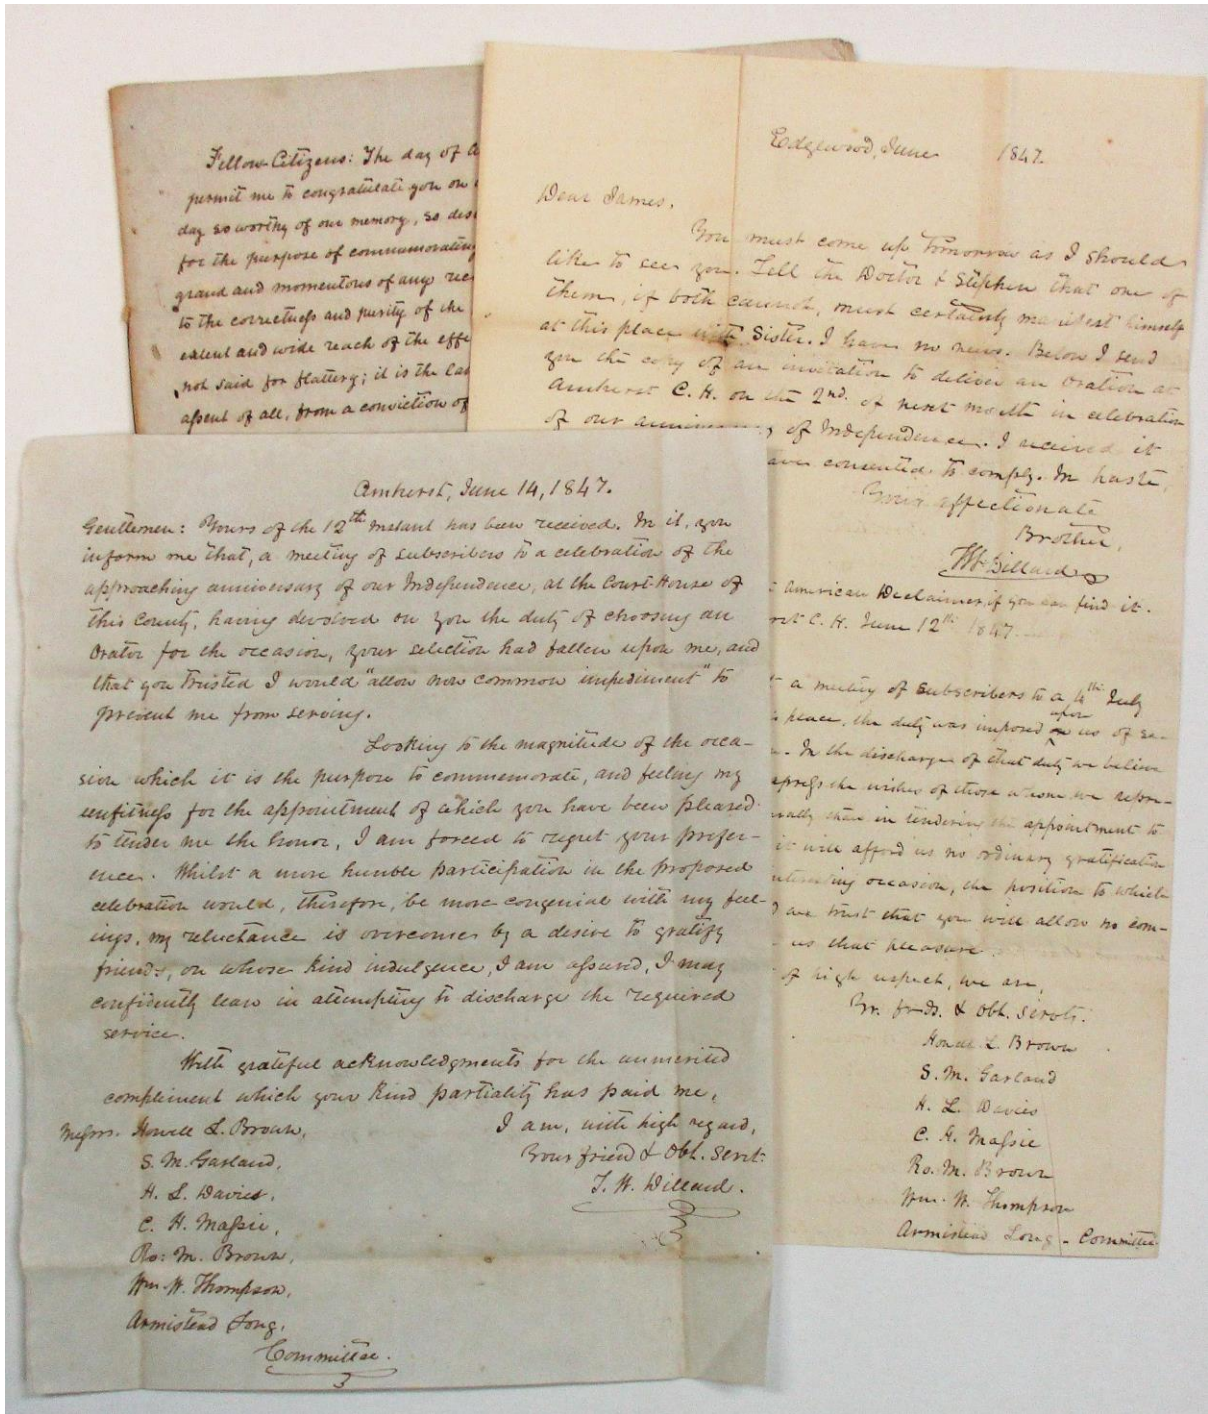 Fellow-Citizens: The day of
permit me to congratulate you on
day so worthy of our memory, so
for the purpose of commemorating
grand and momentous of any
to the correctness and purity of the
extent and wide reach of the
not said for flattery; it is the
assent of all, from a conviction of
Edgewood, June 1847.
Dear James,
You must come up tomorrow as I should
like to see you. Tell the Doctor & Stephen that one of
them, if both cannot, must certainly manifest himself
at this place with Sister. I have no news. Below I send
you the copy of an invitation to deliver an Oration at
Amherst C. H. on the 2nd. of next month in celebration
of our anniversary of Independence. I received it
have consented to comply. In haste,
Your affectionate
Brother,
American Declaimer, if you can find it.
C. H. June 12th 1847.
a meeting of subscribers to a 4th July
place, the duty was imposed upon us of
In the discharge of that duty we believe
the wishes of those whom we repre-
than in tendering the appointment to
it will afford us no ordinary gratification
occasion, the position to which
we trust that you will allow no com-
us that pleasure.
of high respect, we are,
Yr. frds. & Obt. Servts.
Howell L. Brown
S. M. Garland
H. L. Davies
C. H. Massie
Ro. M. Brown
Wm. W. Thompson
Armistead Long - Committee
Amherst, June 14, 1847.
Gentlemen: Yours of the 12th instant has been received. In it, you
inform me that, a meeting of subscribers to a celebration of the
approaching anniversary of our Independence, at the Court-House of
this County, having devolved on you the duty of choosing an
Orator for the occasion, your selection had fallen upon me, and
that you trusted I would "allow non common impediment" to
prevent me from serving.
Looking to the magnitude of the occa-
sion which it is the purpose to commemorate, and feeling my
unfitness for the appointment of which you have been pleased
to tender me the honor, I am forced to regret your prefer-
ence. Whilst a more humble participation in the proposed
celebration would, therefore, be more congenial with my feel-
ings, my reluctance is overcome by a desire to gratify
friends, on whose kind indulgence, I am assured, I may
confidently lean in attempting to discharge the required
service.
With grateful acknowledgments for the unmerited
compliment which your kind partiality has paid me,
I am, with high regard,
Your friend & Obt. Servt.
T. H. Dillard.
Messrs. Howell L. Brown,
S. M. Garland,
H. L. Davies,
C. H. Massie,
Ro: M. Brown,
Wm. W. Thompson,
Armistead Long,
Committee.